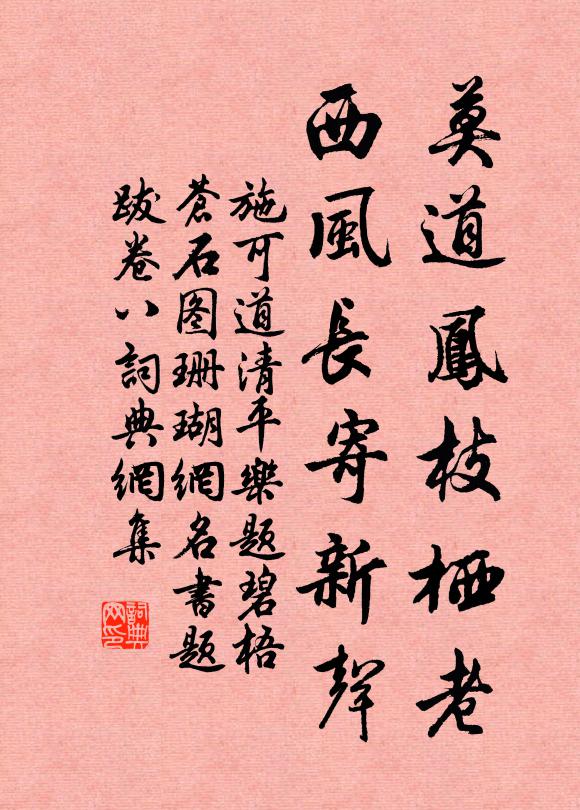 莫道鳳枝栖老
西風長寄新聲
施可道清平樂題碧梧
蒼石图珊瑚網名書題
跋卷八詞典網集
詞典
网印